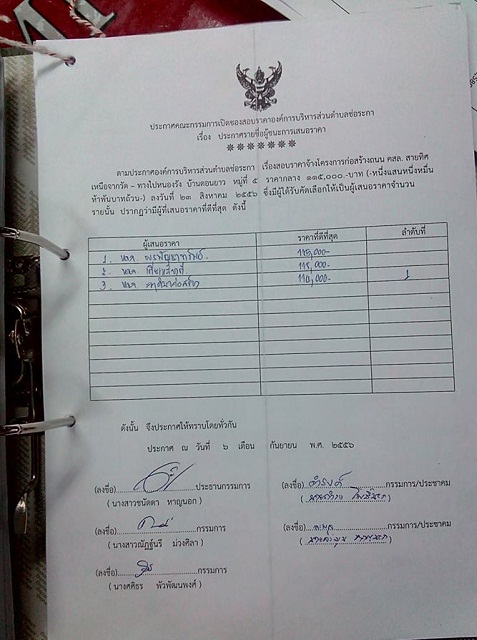 ประกาศคณะกรรมการเปิดซองสอบราคาองค์การบริหารส่วนตำบลช่อระกา
เรื่อง ประกาศรายชื่อผู้ชนะการเสนอราคา
*******
ตามประกาศองค์การบริหารส่วนตำบลช่อระกา เรื่องสอบราคาจ้างโครงการก่อสร้างถนน คสล. สายทิศ
เหนือจากวัด - ทางไปหนองรัง บ้านดอนยาว หมู่ที่ ๕ ราคากลาง ๑๑๕,๐๐๐.-บาท (-หนึ่งแสนหนึ่งหมื่น
ห้าพันบาทถ้วน-) ลงวันที่ ๒๓ สิงหาคม ๒๕๕๖ ซึ่งมีผู้ได้รับคัดเลือกให้เป็นผู้เสนอราคาจำนวน
รายนั้น ปรากฏว่ามีผู้ที่เสนอราคาที่ดีที่สุด ดังนี้
ผู้เสนอราคา ราคาที่ดีที่สุด ลำดับที่
1. หจก.
2. หจก. 115,000-
3. หจก. 114,000- 1
ดังนั้น จึงประกาศให้ทราบโดยทั่วกัน
ประกาศ ณ วันที่ ๖ เดือน กันยายน พ.ศ. ๒๕๕๖
(ลงชื่อ) ประธานกรรมการ (ลงชื่อ) กรรมการ/ประชาคม
(นางสาวชนัดดา หาญนอก)
(ลงชื่อ) กรรมการ (ลงชื่อ) กรรมการ/ประชาคม
(นางสาวณัฏฐ์นรี ม่วงศิลา)
(ลงชื่อ) กรรมการ
(นางศศิธร พัวพัฒนพงศ์)